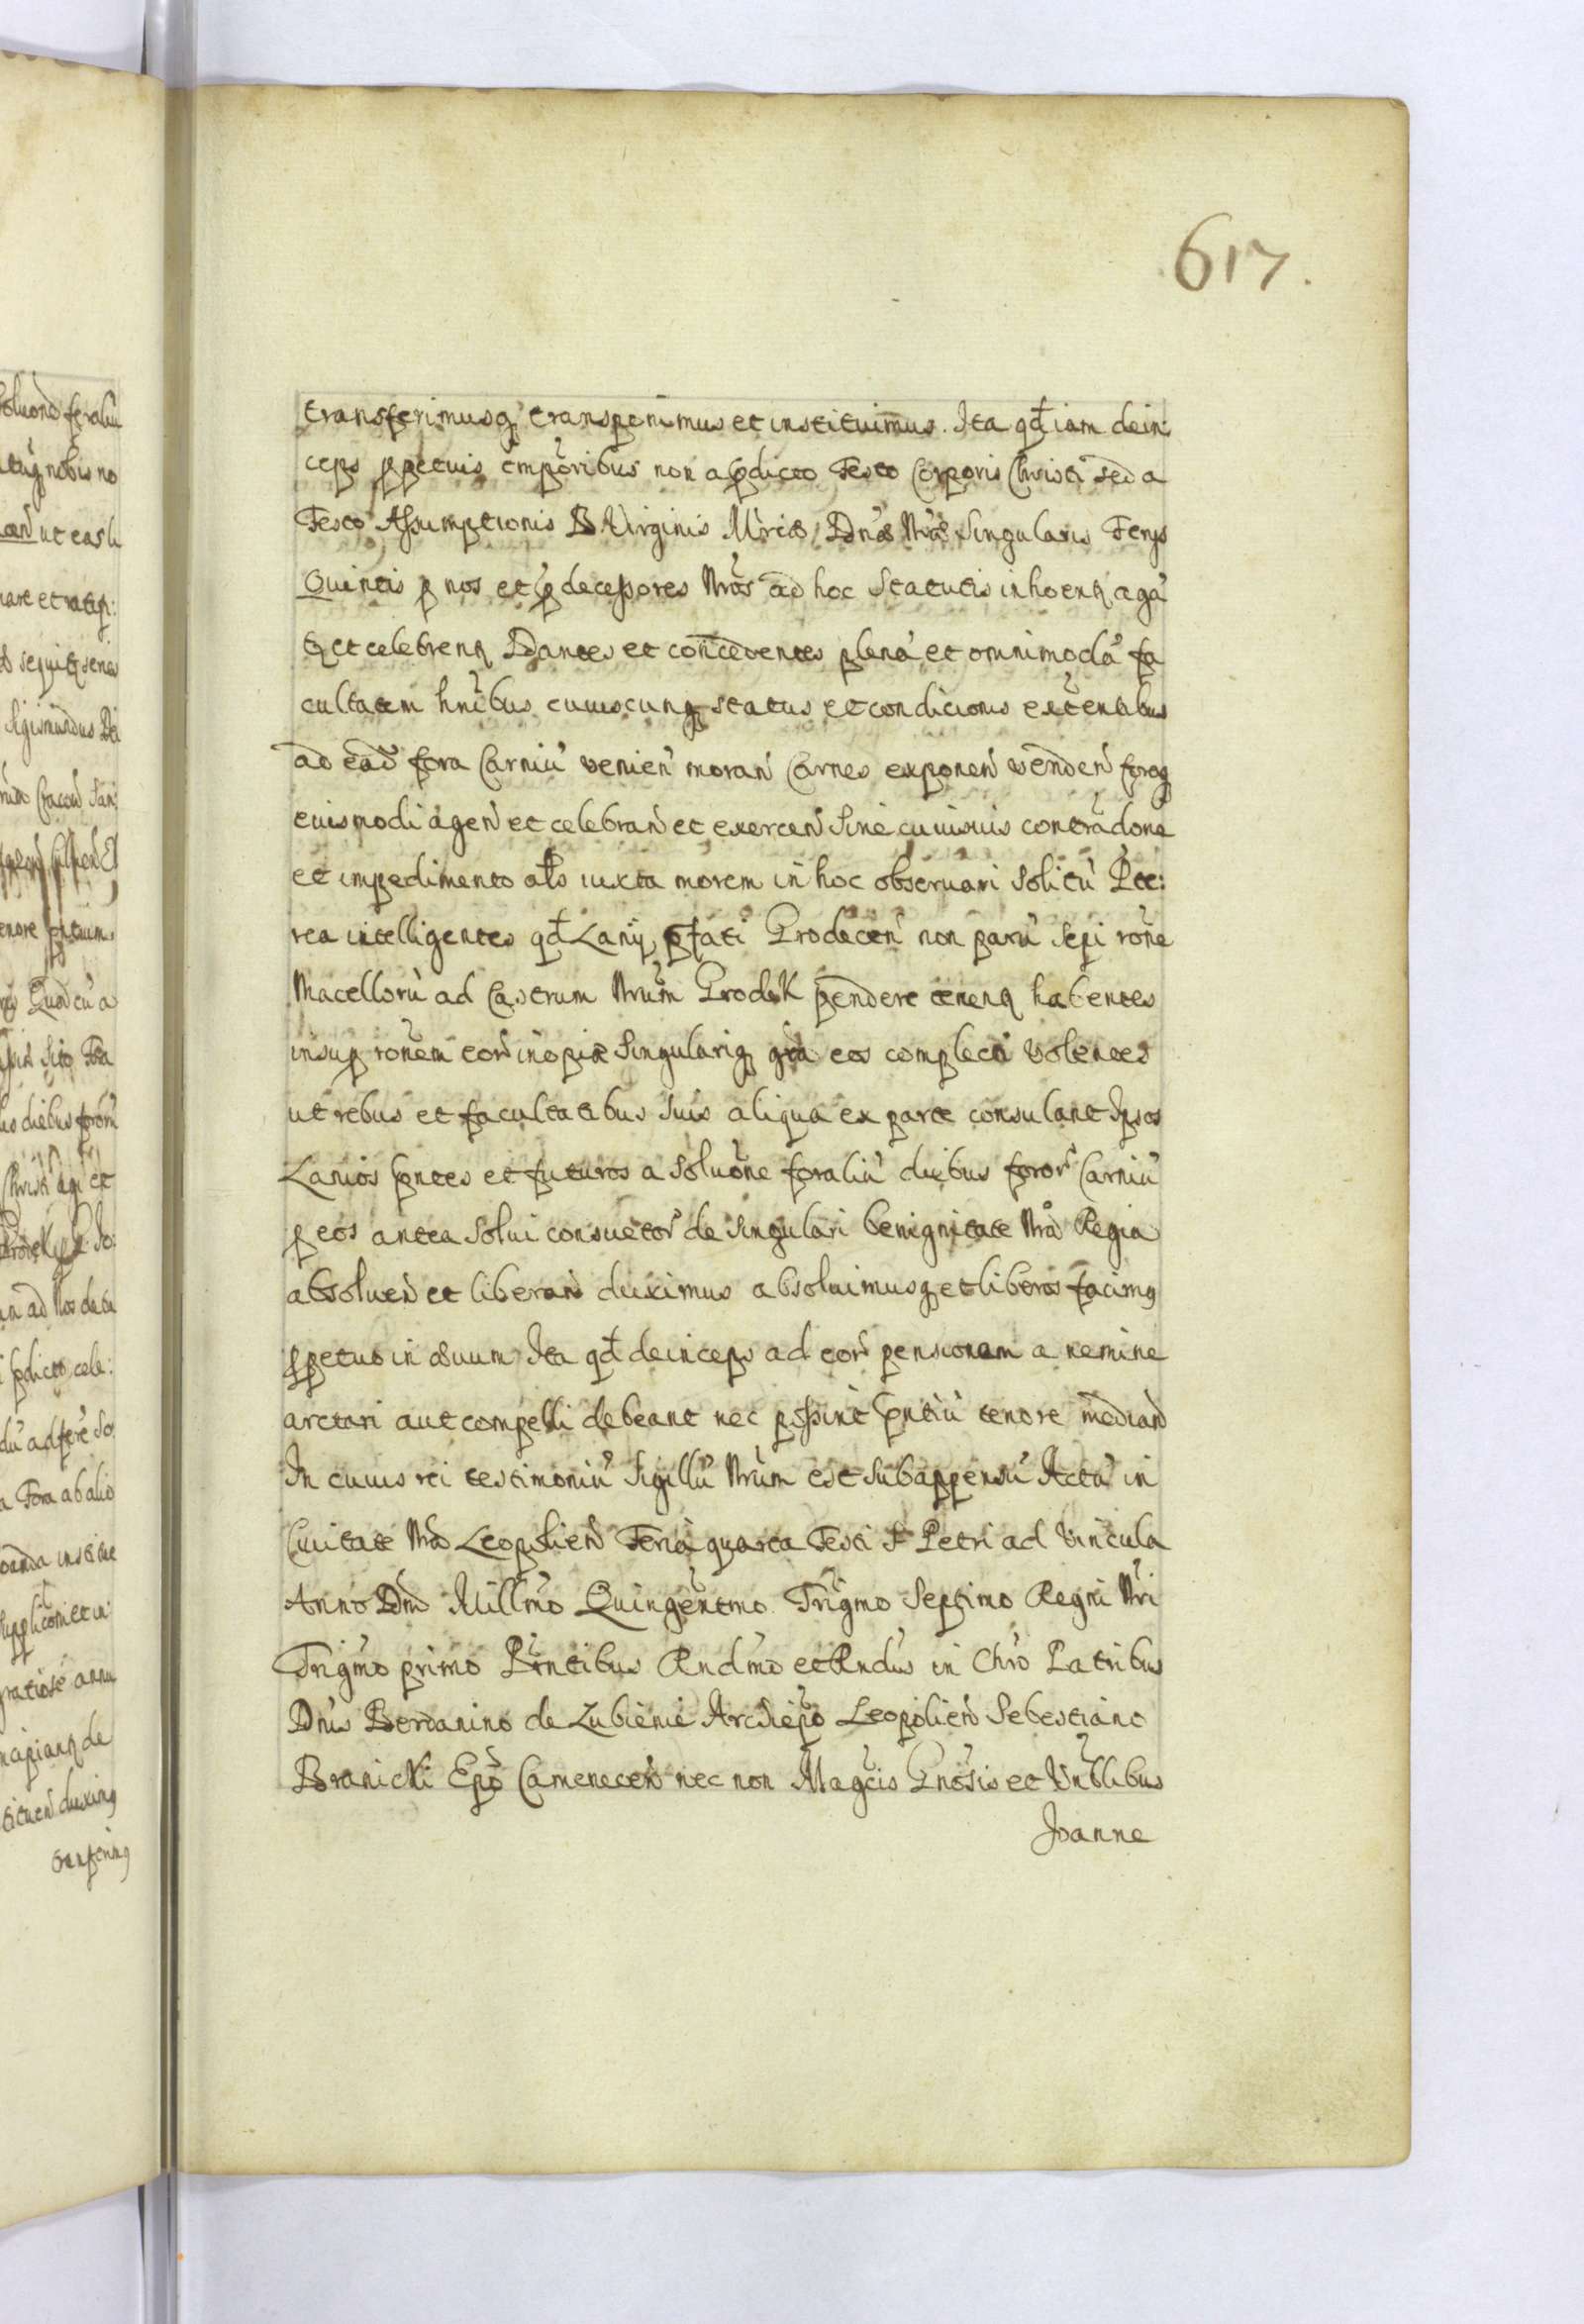 617.
transferimusq transponimus et instituimus. Ita qd iam dein:
ceps ppetuis tmporibus non a pdicto Festo Corporis Christi sed a
Festo Assumptionis B Virginis Mriæ Dnæ Nræ Singularis Ferys
Quintis p nos et pdecessores Nros ad hoc Statutis inhoentq aga
tq et celebrenq Dantes et concedentes plena et omnimoda fa
cultatem hnibus cuiuscunq status et condicionis extentibus
ad ead fora Carniu venien moran Carnes exponen venden foraq
eiusmodi agen et celebran et exercen Sine cuiusuis contradone
et impedimento als iuxta morem in hoc obseruari Solitu Pte:
rea intelligentes qd Lanij pfati Grodecen non paru Sepi rone
Macelloru ad Castrum Nrum Grodek pendere tenenq habentes
insup ronem eor inopiæ Singulariq gra eos complecti Volentes
ut rebus et facultatibus Suis aliqua ex parte consulant Ipsos
Lanios pntes et futuros a Soluone foraliu diebus foror Carniu
p eos antea Solui consuetor de Singulari benignitate Nra Regia
absoluen et liberan duximus absoluimusq et liberos facimq
ppetuo in æuum Ita qd deinceps ad eor pensionem a nemine
arctari aut compelli debeant nec possint pntiu tenore median
In cuius rei testimoniu Sigillu Nrum est Subappensu Actu in
Ciuitate Nra Leopolien Feria quarta Festi S Petri ad Vincula
Anno Dni Millmo Quingentmo Trigmo Septimo Regni Nri
Trigmo primo Pntibus Rndmo et Rndis in Chro Patribus
Dnis Bernanino de Zubienie Archiepo Leopolien Sebestiano
Branicki Epo Camenecen nec non Magcis Gnosis et Vnblibus
Joanne